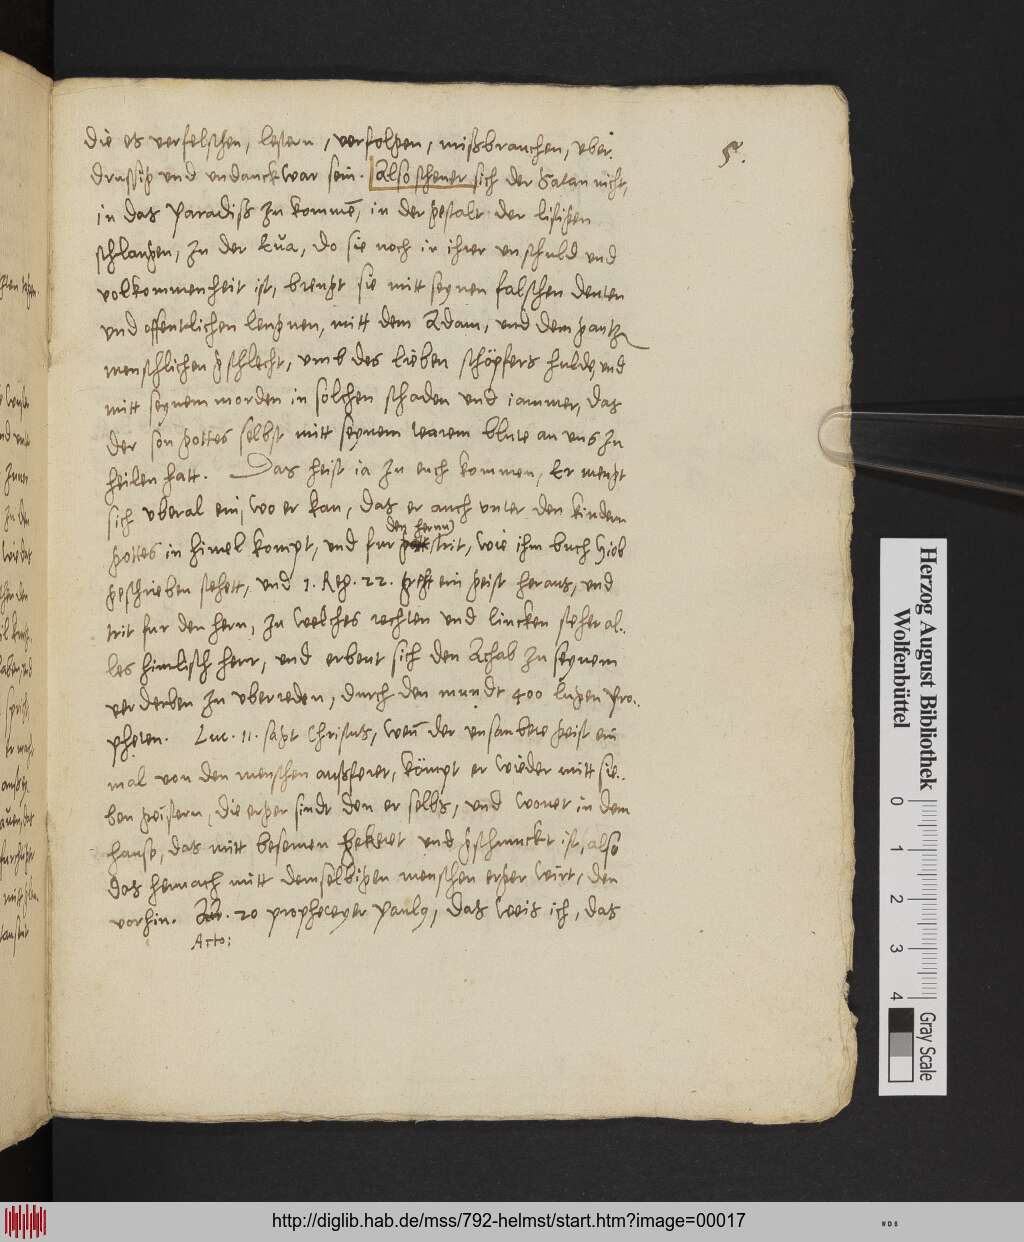 5.
die es verfelschen, lestern, verfolgen, missbrauchen, vber,
drussig vnd vndanckbar sein. Also schewet sich der Satan nicht,
in das Paradiss zu kommē, in der gestalt der listigen
schlangen, zu der Eua, do sie noch in ihrer vnschuld vnd
volkommenheit ist, brengt sie mitt seynen falschen deuten
vnd offentlichen leugnen, mitt dem Adam, vnd dem gantzn
menschlichen gschlecht, vmb des lieben schöpfers hulde, vnd
mitt seynem morden in solchen schaden vnd iammer, das
der son gottes selbst mitt seynem blute an vns zu
heilen hatt. Das heist ia zu euch kommen, Er mengt
sich vberal ein, wo er kan, das er auch vnter den kindern
den herrn
gottes in himel kompt, vnd fur trit, wie ihm buch Hiob
geschrieben stehett, vnd 1. Reg. 22. geht ein geist heraus, vnd
trit fur den hern, zu welches rechten vnd lincken stehet al-
les himlisch herr, vnd erbeut sich den Achab zu seynem
verderben zu vberreden, durch den mundt 400 lugen Pro-
pheten. Luc. 11. sagt Christus, weñ der vnsaubere geist ein
mal von den menschen aussferet, kömpt er wieder mitt sie-
ben geistern, die erger sindt den er selbs, vnd wonet in dem
hause, das mitt besemen gekeret vnd gschmuckt ist, also
das hernach mitt demselbigen menschen erger wirt, den
vorhin. Act. 20 propheceyet Paulus, das weis ich, das
Acto:
Herzog August Bibliothek
Wolfenbüttel
0 1 2 3 4
Gray Scale
http://diglib.hab.de/mss/792-helmst/start.htm?image=00017